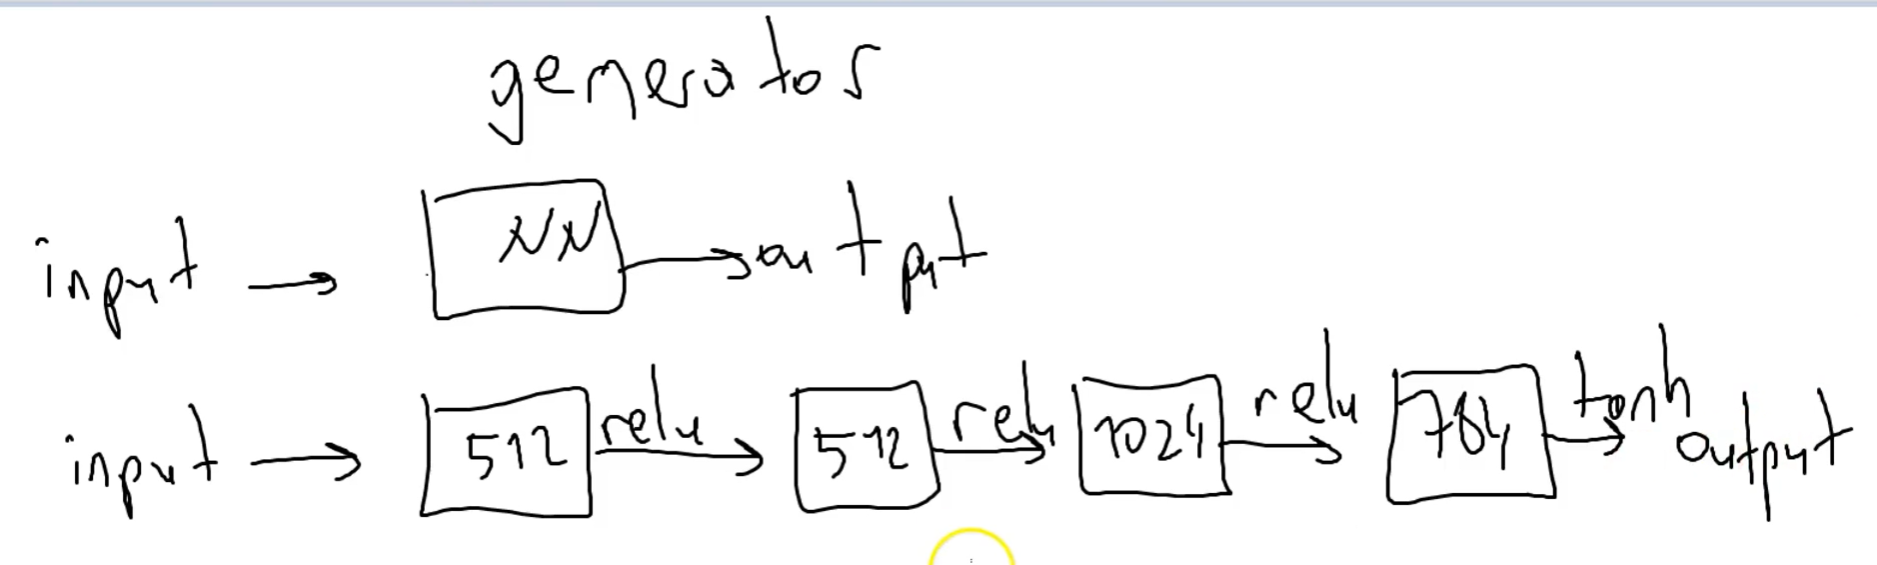 generator
input → NN → output
input → 512 relu → 512 relu → 1024 relu → 784 tanh → output